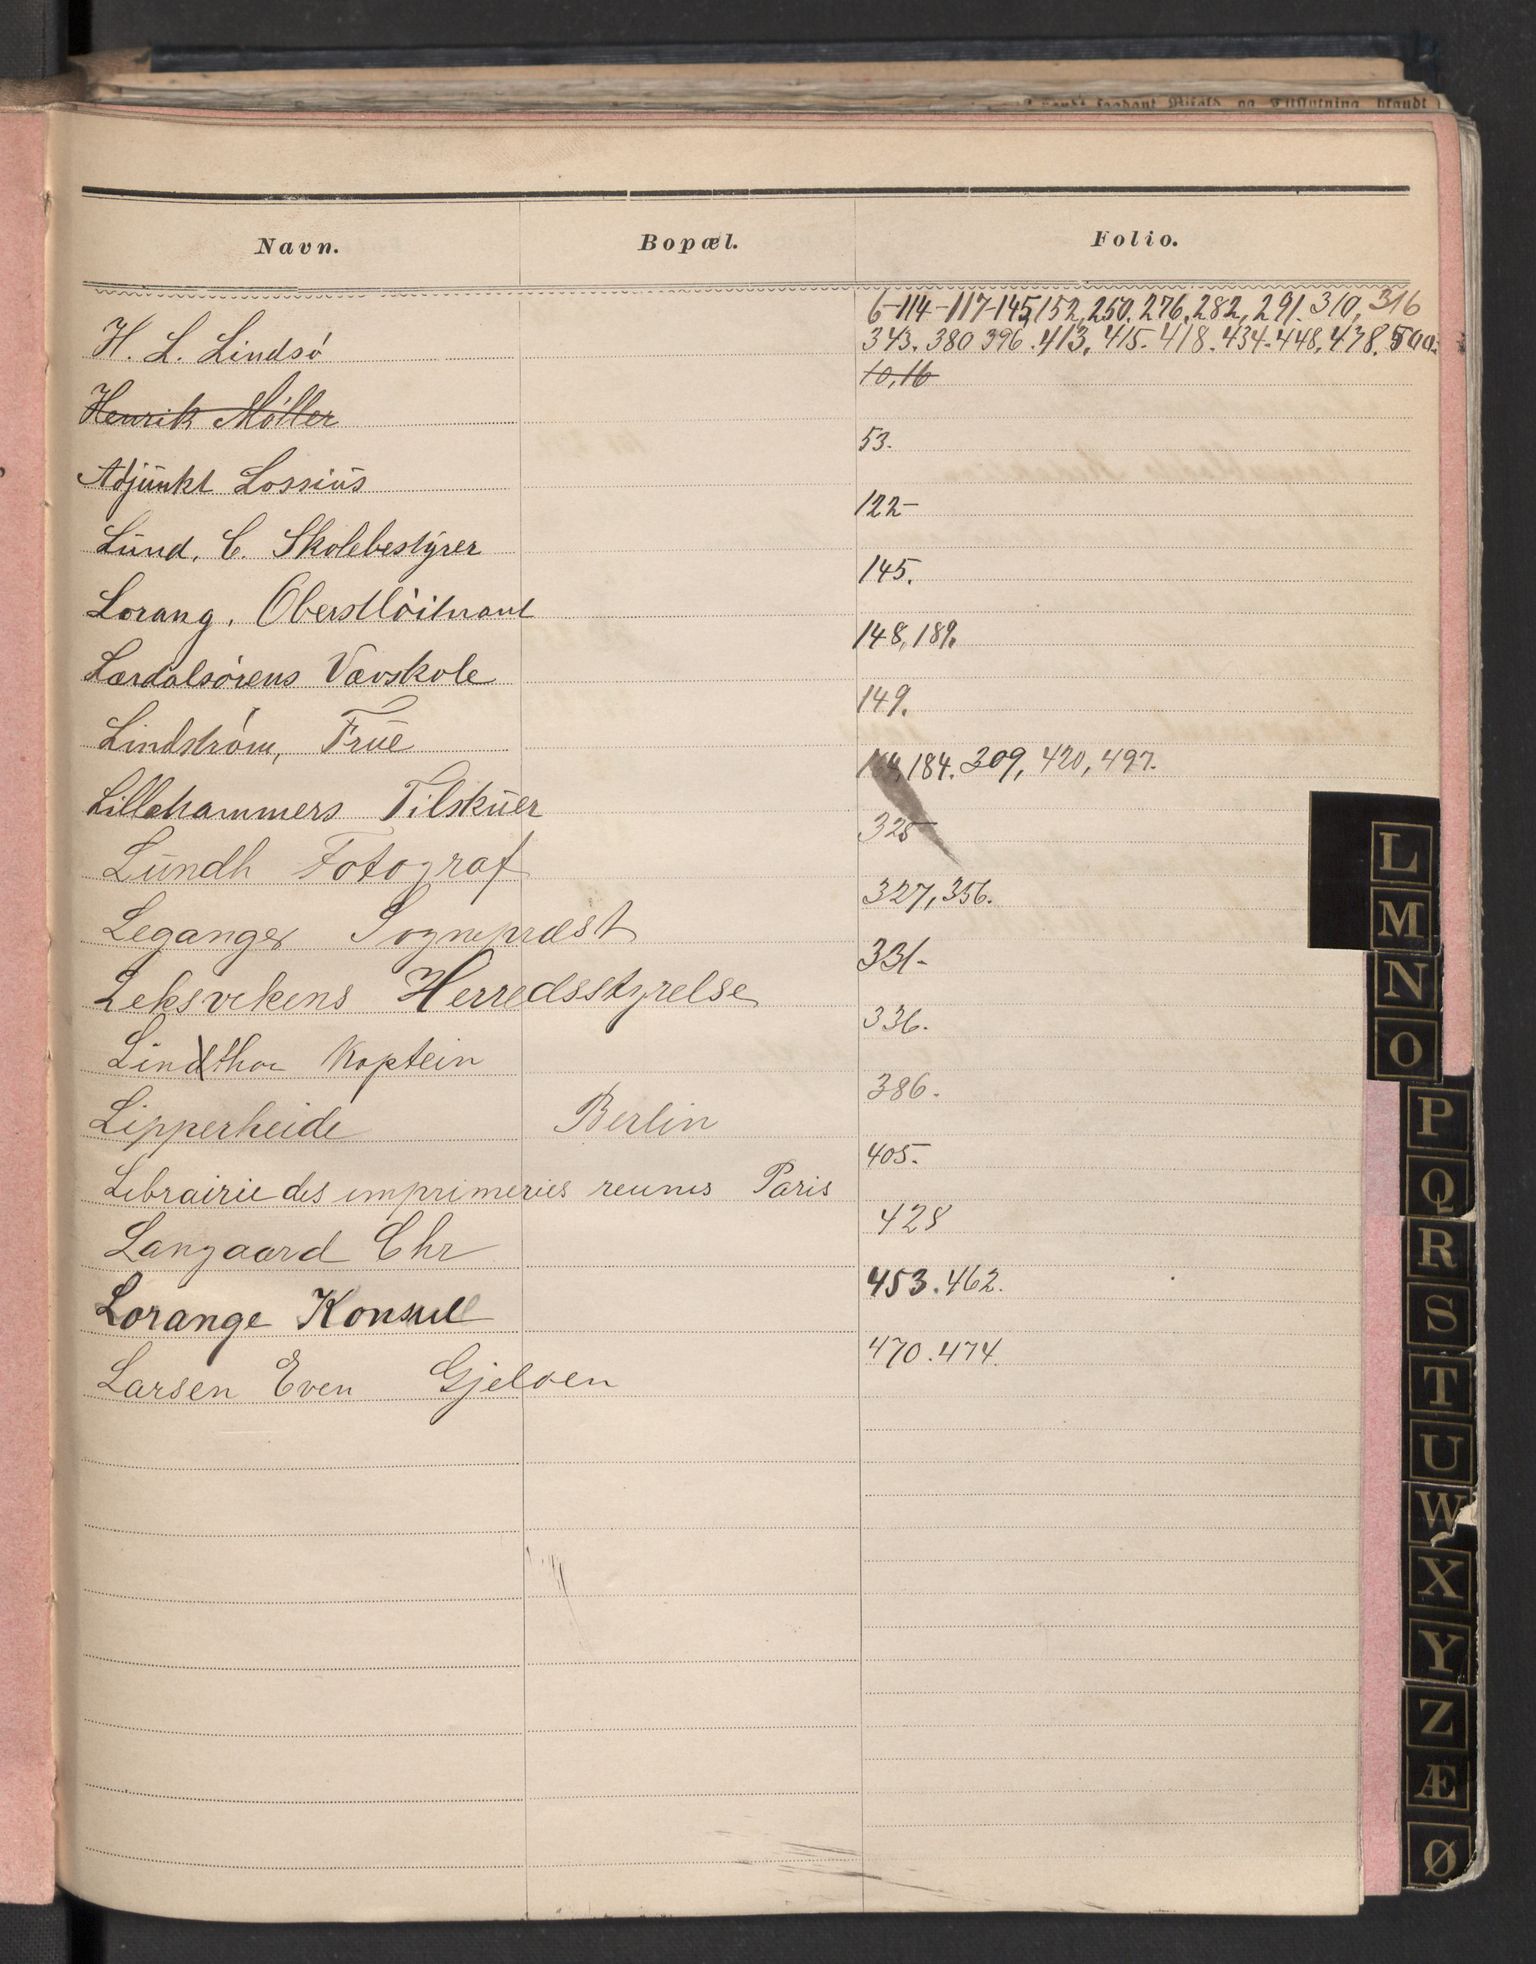 Navn. Bopæl. Folio.
6-114-117-145, 152, 250. 276, 282, 291. 310, 316
H. L. Lindsø 343. 380 396. 413, 415. 418. 434. 448. 478. 500.
Henrik Møller 10, 16
Adjunkt Lossius 53.
Lund. C. Skolebestyrer 122-
Lorang. Oberstløitnant 145.
Lærdalsørens Vævskole 148, 189.
Lindstrøm, Frue 149.
Lillehammers Tilskuer 184. 309, 420, 497.
Lundh Fotograf 325
Leganger Sognepræst 327, 356.
Leksvikens Herredsstyrelse 331-
Linthoe Kaptein 336.
Lipperheide Berlin 386.
Librairie des imprimeries reunis Paris 405.
Langaard Chr 428
Lorange Konsul 453. 462.
Larsen Even Gjeloen 470. 474.
L
M
N
O
P
Q
R
S
T
U
W
X
Y
Z
Æ
Ø